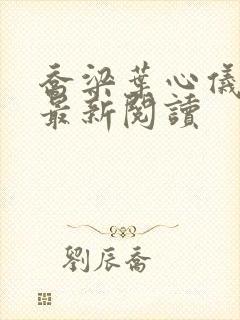 喬梁葉心儀
最新閱讀
劉辰喬